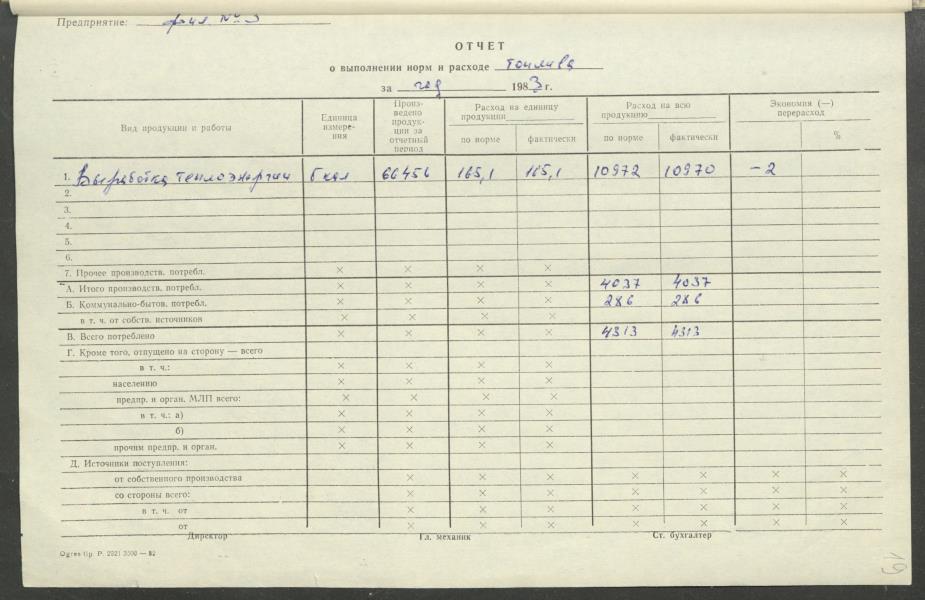 Предприятие: фил № 3
ОТЧЕТ
о выполнении норм и расходе топлива
за год 1983 г.
Вид продукции и работы
Единица измерения
Произведено продукции за отчетный период
Расход на единицу продукции
по норме
фактически
Расход на всю продукцию
по норме
фактически
Экономия (—) перерасход
%
1. Выработка теплоэнергии Гкал 66456 165,1 165,1 10972 10970 −2
2.
3.
4.
5.
6.
7. Прочее производств. потребл. × × × ×
А. Итого производств. потребл. × × × × 4037 4037
Б. Коммунально-бытов. потребл. × × × × 286 286
в т. ч. от собств. источников × × × ×
В. Всего потреблено × × × × 4313 4313
Г. Кроме того, отпущено на сторону — всего
в т. ч.: × × × ×
населению × × × ×
предпр. и орган. МЛП всего: × × × ×
в т. ч.: а) × × × ×
б) × × × ×
прочим предпр. и орган. × × × ×
Д. Источники поступления:
от собственного производства × × × × × × ×
со стороны всего: × × × × × × ×
в т. ч. от × × × × × × ×
от × × × × × × ×
Директор Гл. механик Ст. бухгалтер
Ogres tip. P. 2021 3500 — 82
19